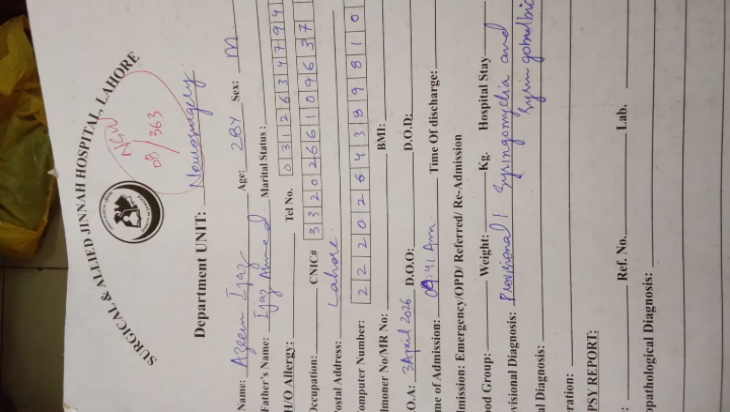 SURGICAL & ALLIED JINNAH HOSPITAL, LAHORE
NSW
08/363
Department UNIT: Neurosurgery
Name: Azeem Ijaz Age: 28Y Sex: M
Father's Name: Ijaz Ahmed Marital Status:
H/O Allergy: Tel No. 03126347794
Occupation: CNIC# 3320266109637
Postal Address: Lahore
Computer Number: 2220264389810
lmoner No/MR No: BMI:
.O.A: 3 April 2026 D.O.O: D.O.D:
me of Admission: 09:41 Am Time Of discharge:
lmission: Emergency/OPD/ Referred/ Re-Admission
ood Group: Weight: Kg. Hospital Stay
ovisional Diagnosis: Provisional / Syringomyelia and
Syringobulbi
al Diagnosis:
ration:
PSY REPORT:
: Ref. No. Lab.
opathological Diagnosis: